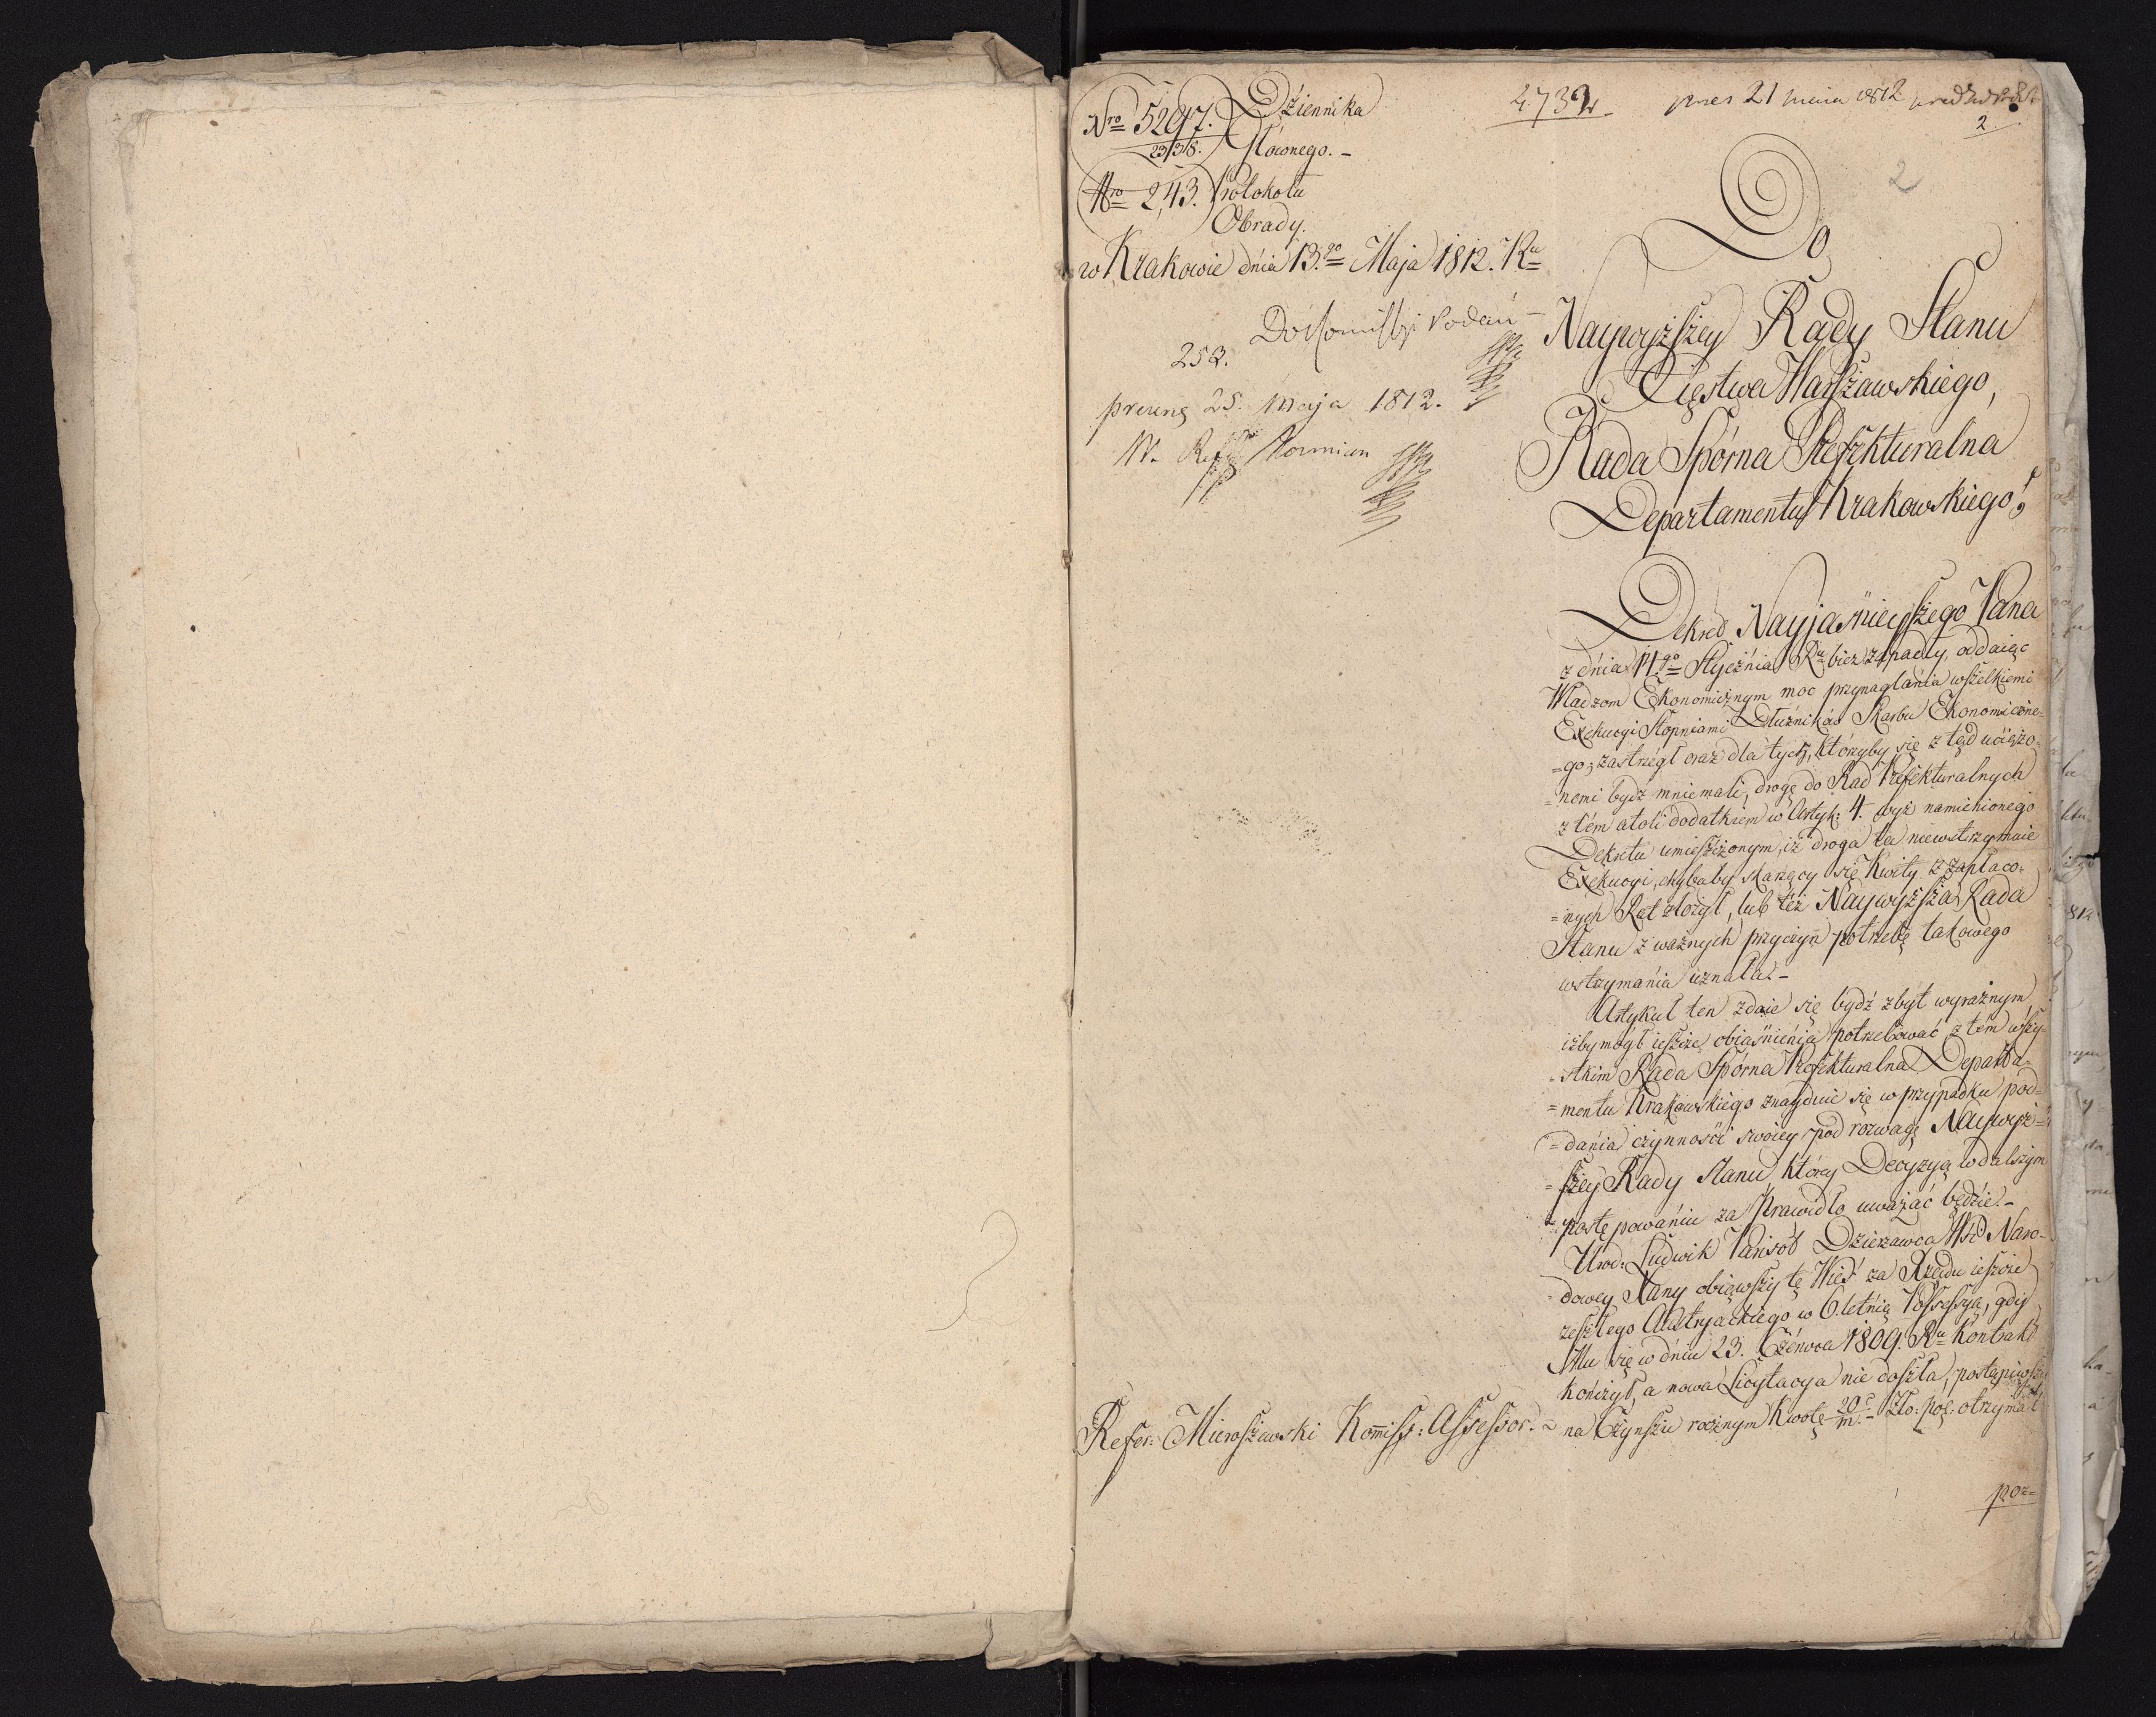 Nro 5297. Dziennika
23/3/8. Głownego. -
Nro 243. Protokołu
Obrady.
w Krakowie dnia 13.go Maja 1812. Ru
Do Komissyi Podań -
252.
25. Maja 1812.
W. Ref.
2732
pres 21 maia 1812
2
2
Do
Naywyższey Rady Stanu
Xięstwa Warszawskiego,
Rada Spórna Prefekturalna
Departamentu Krakowskiego!
Dekret Nayjaśnieyszego Pana
z dnia 14.go Stycznia Ru bież zapadły, oddaiąc
Władzom Ekonomicznym moc przynaglania wszelkiemi
Exekucyi Stopniami Dłużników Skarbu Ekonomiczne-
=go, zastrzegł oraz dla tych, którzyby się z tąd uciążo-
=nemi bydz mniemali, drogę do Rad Prefekturalnych
z tém atoli dodatkiem w Artyk: 4. wyż namienionego
Dekretu umieszczonym, iż droga ta niewstrzymuie
Exekucyi, chybaby skarżący się Kwity z zapłaco-
=nych Rat złożył, lub też Naywyższa Rada
Stanu z ważnych przyczyn potrzebę takowego
wstrzymania uznała. -
Artykuł ten zdaie się bydź zbyt wyraźnym,
iżby mógł ieszcze obiaśnienia potrzebować, z tém wszy-
=stkim Rada Spórna Prefekturalna Departa-
=mentu Krakowskiego znayduie się w przypadku pod-
=dania czynności swoiey pod rozwagę Naywyż-
=szey Rady Stanu, którey Decyzyą w dalszym
postępowaniu za Prawidło uważać będzie. -
Urod: Ludwik Parisot Dzierzawca Wsi Naro-
dowey Kany obiąwszy tę Wieś za Rządu ieszcze
zeszłego Austryackiego w 6. letnią Possessyą, gdy
Mu się w dniu 23. Czerwca 1809. Ru Kontrakt
kończył, a nowa Licytacya nie doszła, postąpiwszy
na Czynszu rocznym Kwotę 20c/m. - Zło: pol: otrzymał
Refer: Mieroszewski Komiss: Assessor. -
poz=